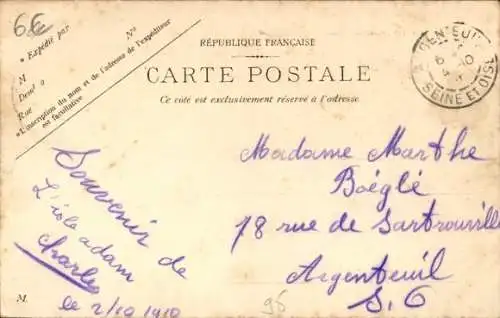 6€
* Expédié par
N°
M
Demt à
Rue
*L'inscription du nom et de l'adresse de l'expéditeur
est facultative
RÉPUBLIQUE FRANÇAISE
CARTE POSTALE
Ce côté est exclusivement réservé à l'adresse
SEINE ET OISE
Souvenir de
L'isle adam
Charles
le 2/10 1910
Madame Marthe
Boéglé
78 rue de Sartrouville
Argenteuil
S. O
M.
96